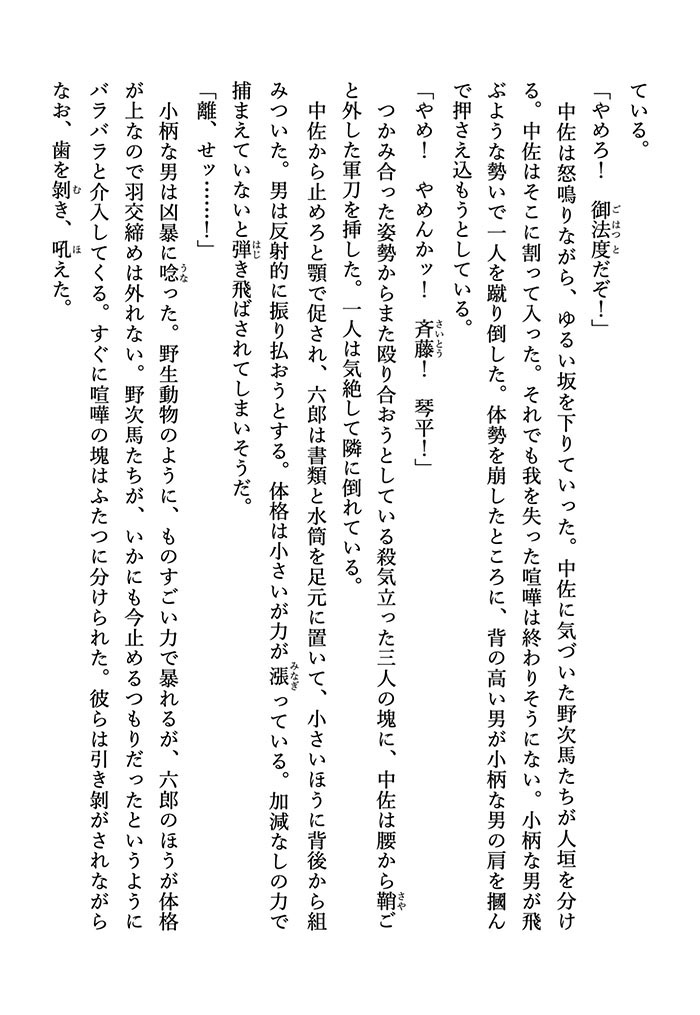 ている。
「やめろ！　御法度だぞ！」
　中佐は怒鳴りながら、ゆるい坂を下りていった。中佐に気づいた野次馬たちが人垣を分け
る。中佐はそこに割って入った。それでも我を失った喧嘩は終わりそうにない。小柄な男が飛
ぶような勢いで一人を蹴り倒した。体勢を崩したところに、背の高い男が小柄な男の肩を摑ん
で押さえ込もうとしている。
「やめ！　やめんかッ！　斉藤！　琴平！」
　つかみ合った姿勢からまた殴り合おうとしている殺気立った三人の塊に、中佐は腰から鞘ご
と外した軍刀を挿した。一人は気絶して隣に倒れている。
　中佐から止めろと顎で促され、六郎は書類と水筒を足元に置いて、小さいほうに背後から組
みついた。男は反射的に振り払おうとする。体格は小さいが力が漲っている。加減なしの力で
捕まえていないと弾き飛ばされてしまいそうだ。
「離、せッ……！」
　小柄な男は凶暴に唸った。野生動物のように、ものすごい力で暴れるが、六郎のほうが体格
が上なので羽交締めは外れない。野次馬たちが、いかにも今止めるつもりだったというように
バラバラと介入してくる。すぐに喧嘩の塊はふたつに分けられた。彼らは引き剝がされながら
なお、歯を剝き、吼えた。